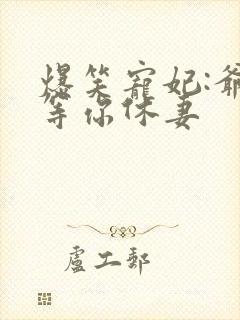 爆笑寵妃:爺
等你休妻
盧工郵